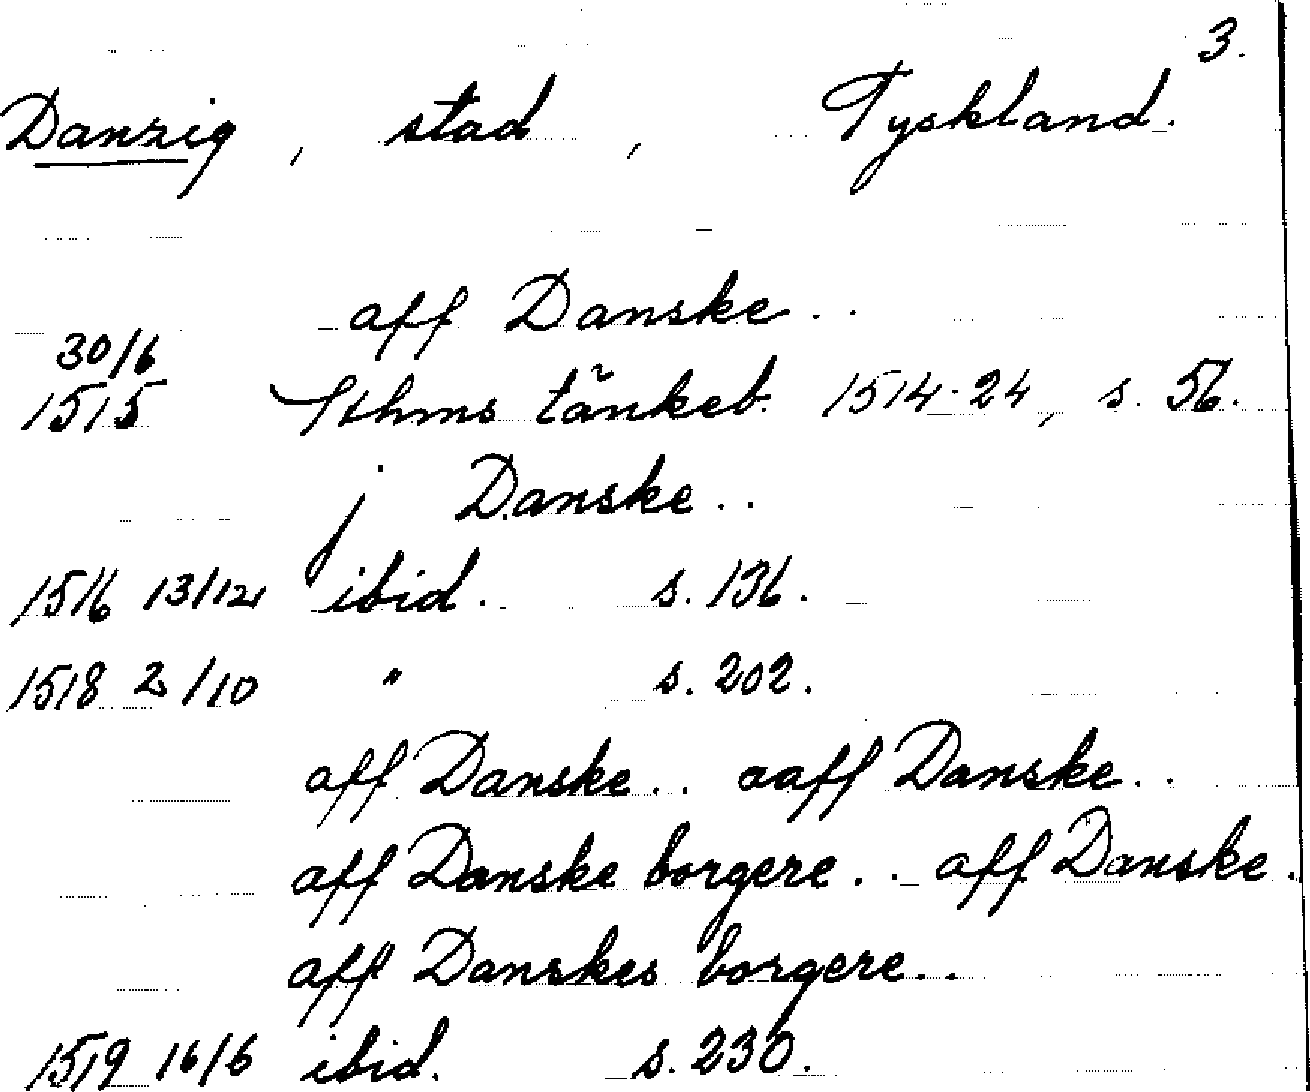 3.
Danzig, stad, Tyskland.
aff Danske..
30/6
1515 Sthms tänkeb. 1514-24, s. 56.
j Danske..
1516 13/12 ibid. s. 136.
1518 2/10 " s. 202.
aff Danske.. aaff Danske..
aff Danske borgere.. aff Danske.
aff Danskes borgere..
1519 16/6 ibid. s. 230.